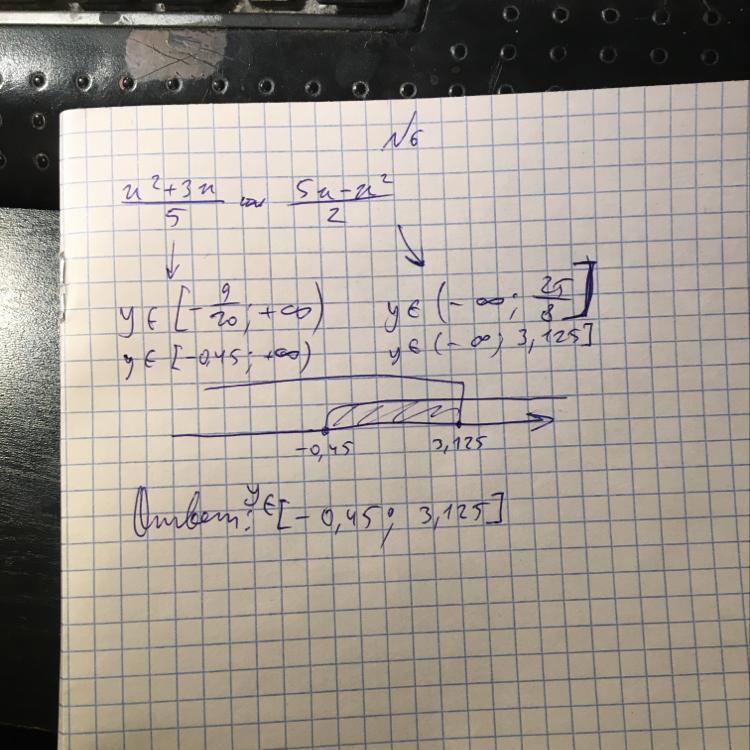 №6
(x²+3x)/5 или (5x-x²)/2
y ∈ [-9/20; +∞) y ∈ (-∞; 25/8]
y ∈ [-0,45; +∞) y ∈ (-∞; 3,125]
-0,45 3,125
Ответ: y ∈ [-0,45; 3,125]